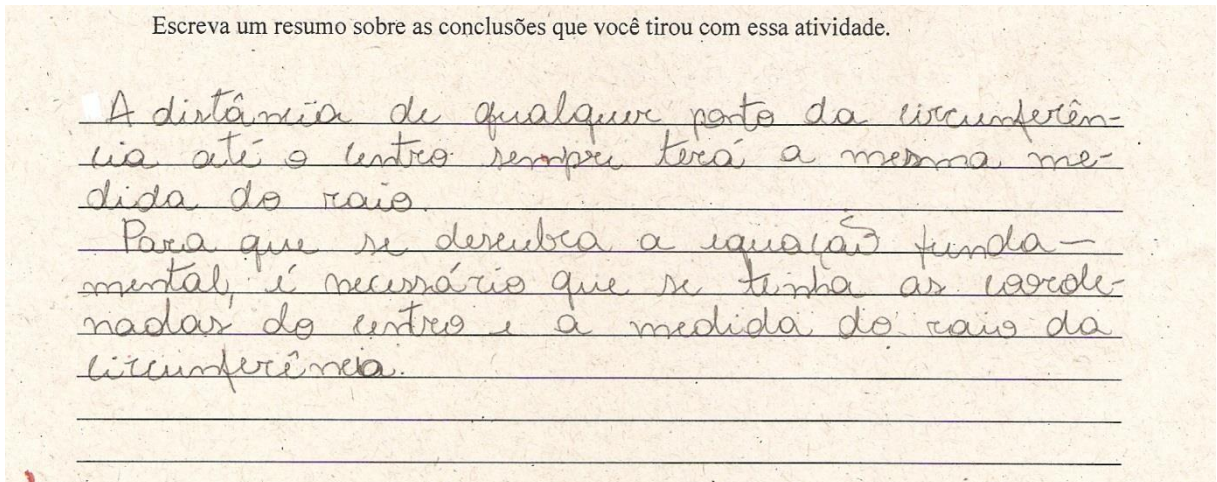 Escreva um resumo sobre as conclusões que você tirou com essa atividade.
A distância de qualquer ponto da circunferên-
cia até o centro sempre terá a mesma me-
dida do raio.
Para que se descubra a equação funda-
mental, é necessário que se tenha as coorde-
nadas do centro e a medida do raio da
circunferência.